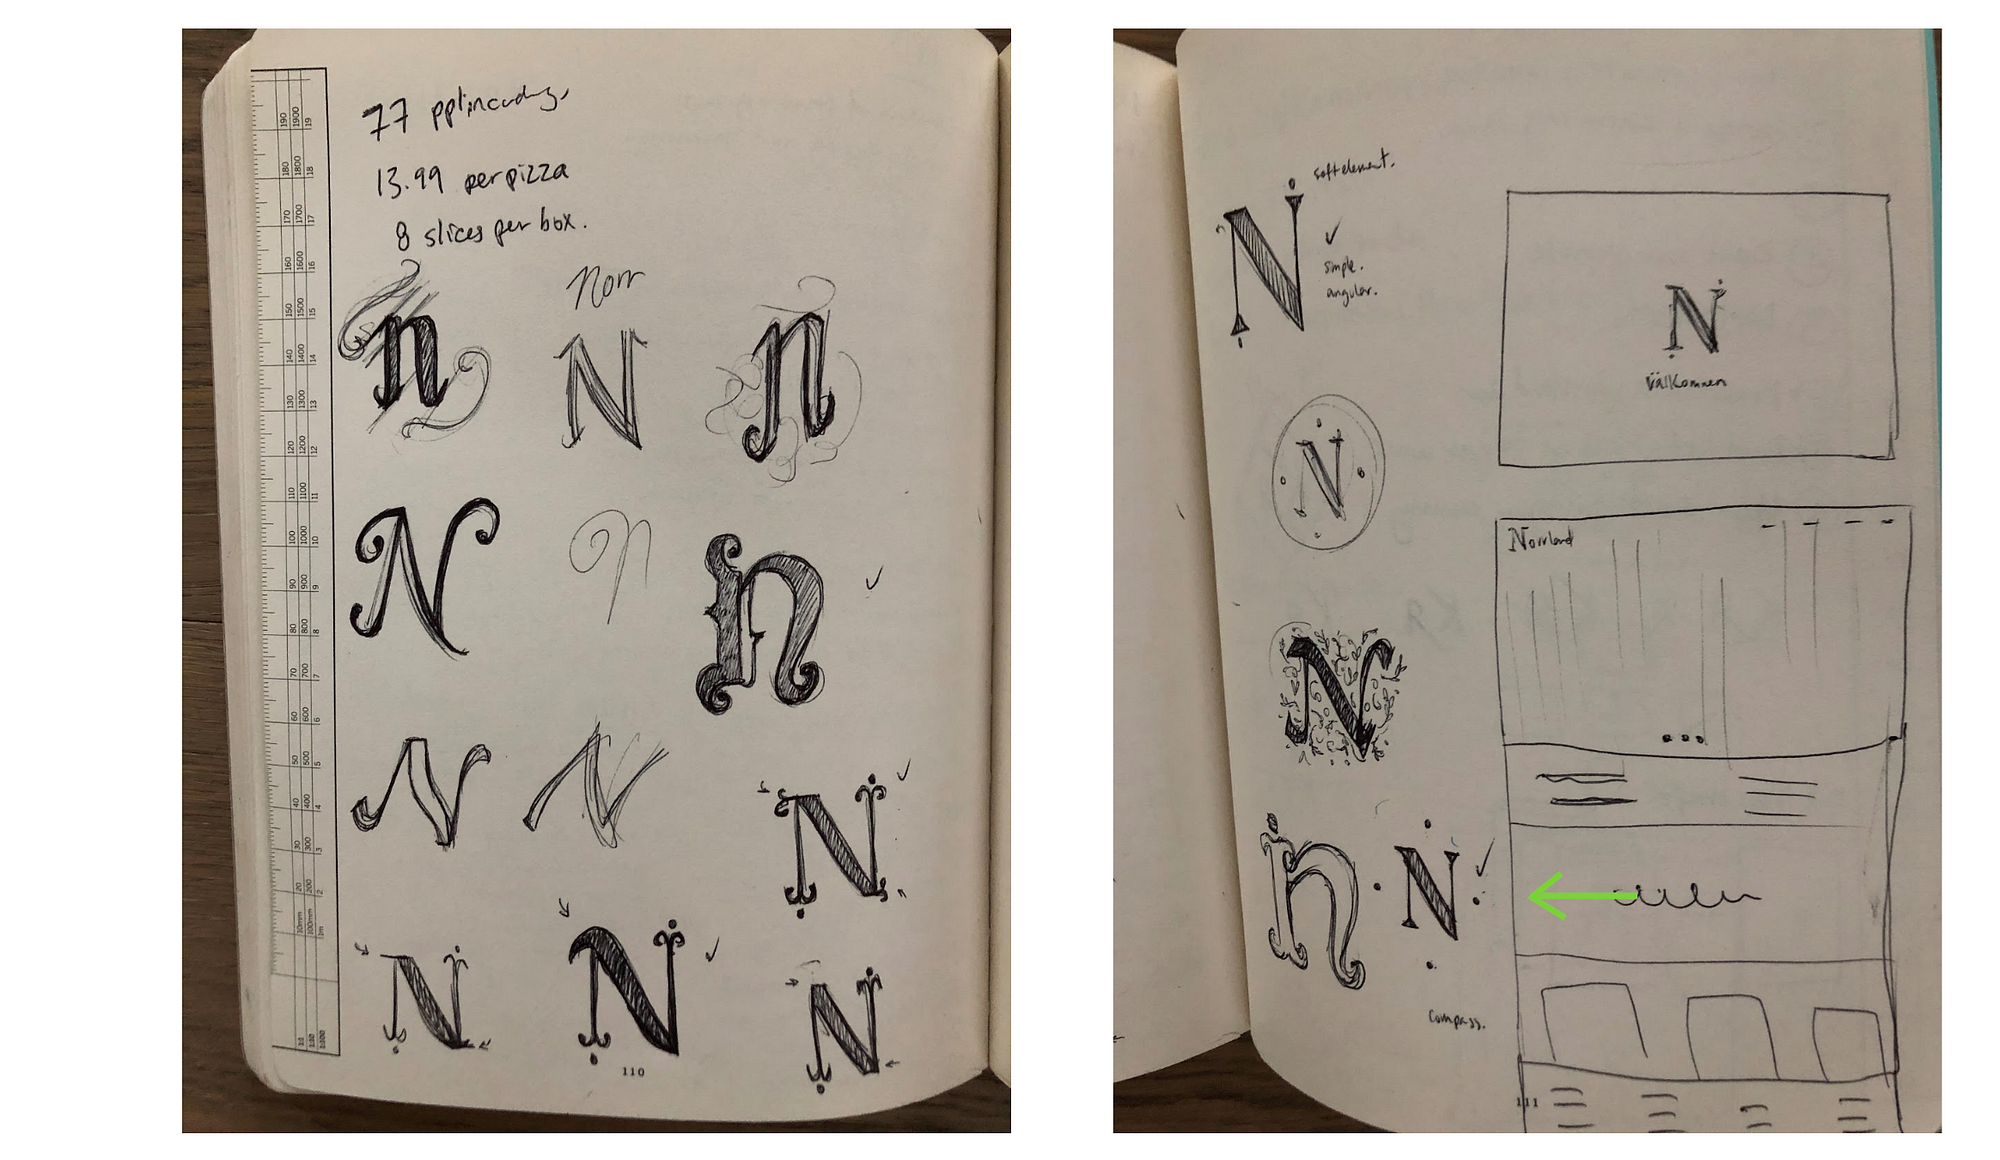 77 ppl
13.99 per pizza
8 slices per box.
Norr
n
N
n
N
n
n
N
N
N
N
N
N
110
190 1900 19
180 1800 18
170 1700 17
160 1600 16
150 1500 15
140 1400 14
130 1300 13
120 1200 12
110 1100 11
100 1000 10
90 900 9
80 800 8
70 700 7
60 600 6
50 500 5
40 400 4
30 300 3
20 200 2
10mm 100mm 1m
1:1 1:10 1:100
soft element.
N
simple.
angular.
N
Välkommen
N
Norrland
N
n
N
compass.
111